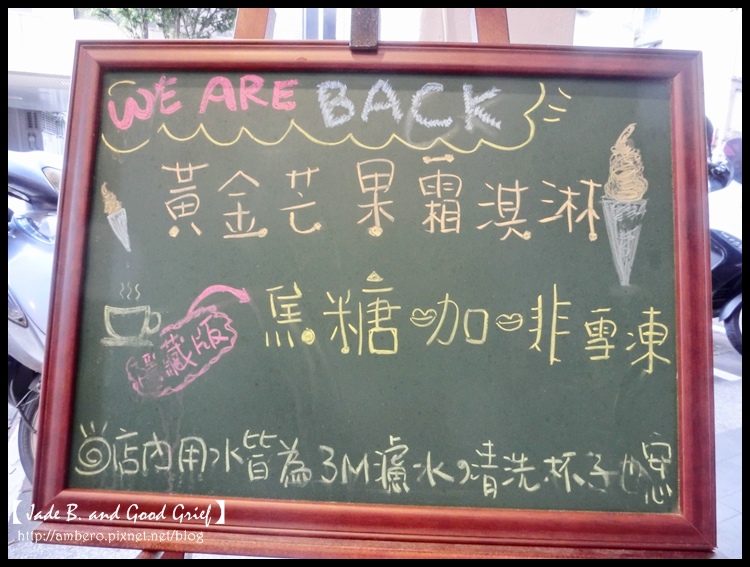 WE ARE BACK
黃金芒果霜淇淋
隱藏版
焦糖咖啡雪凍
店內用水皆為3M濾水,清洗杯子也安心
【Jade B. and Good Grief】
http://ambero.pixnet.net/blog